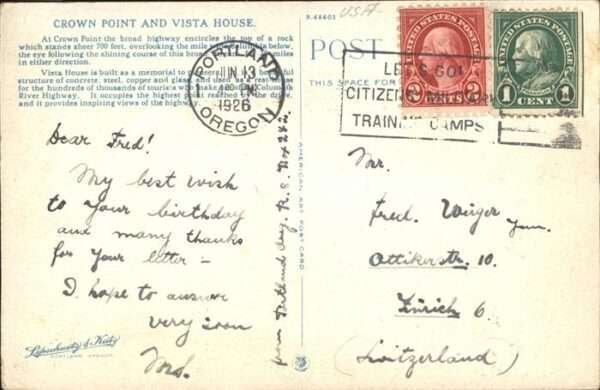 CROWN POINT AND VISTA HOUSE.
At Crown Point the broad highway encircles the top of a rock
which stands sheer 700 feet, overlooking the mile wide Columbia below,
the eye following the shining course of this broad
in either direction.
Vista House is built as a memorial to
structure of concrete, steel, copper and glass and used
for the hundreds of thousands of tourists who make the Columbia
River Highway. It occupies the highest point reached by the
and it provides inspiring views of the highway.
Dear Fred!
My best wish
to your birthday
and many thanks
for your letter –
I hope to answer
very soon
Mrs.
from Portland Oreg. R. 8. Box 242.
Lipschuetz & Katz
PORTLAND, OREGON
AMERICAN ART POST CARD
R-48603
USA
POST
THIS SPACE FOR
PORTLAND
JUN 13
PM
1926
OREGON
LET'S GO!
CITIZENS MILITARY
TRAINING CAMPS
2 CENTS 2
UNITED STATES POSTAGE
1 CENT 1
Mr.
Fred. Weiger jun.
Ottikerstr. 10.
Zürich 6
(Switzerland)